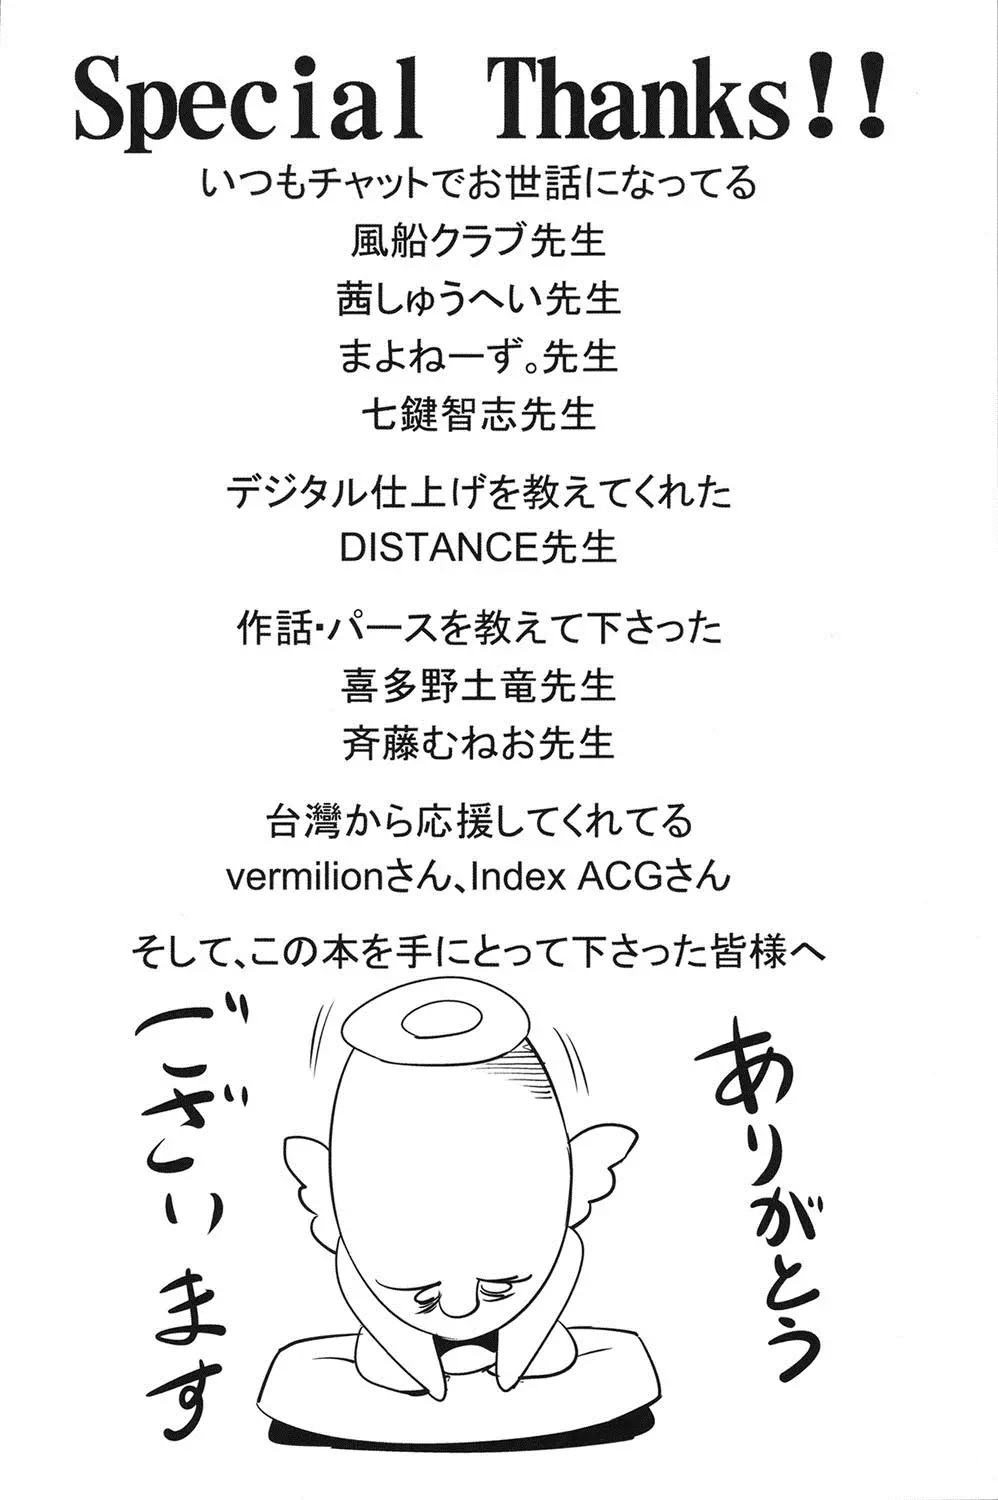 Special Thanks!!
いつもチャットでお世話になってる
風船クラブ先生
茜しゅうへい先生
まよねーず。先生
七鍵智志先生
デジタル仕上げを教えてくれた
DISTANCE先生
作話・パースを教えて下さった
喜多野土竜先生
斉藤むねお先生
台灣から応援してくれてる
vermilionさん、Index ACGさん
そして、この本を手にとって下さった皆様へ
ありがとう
ございます